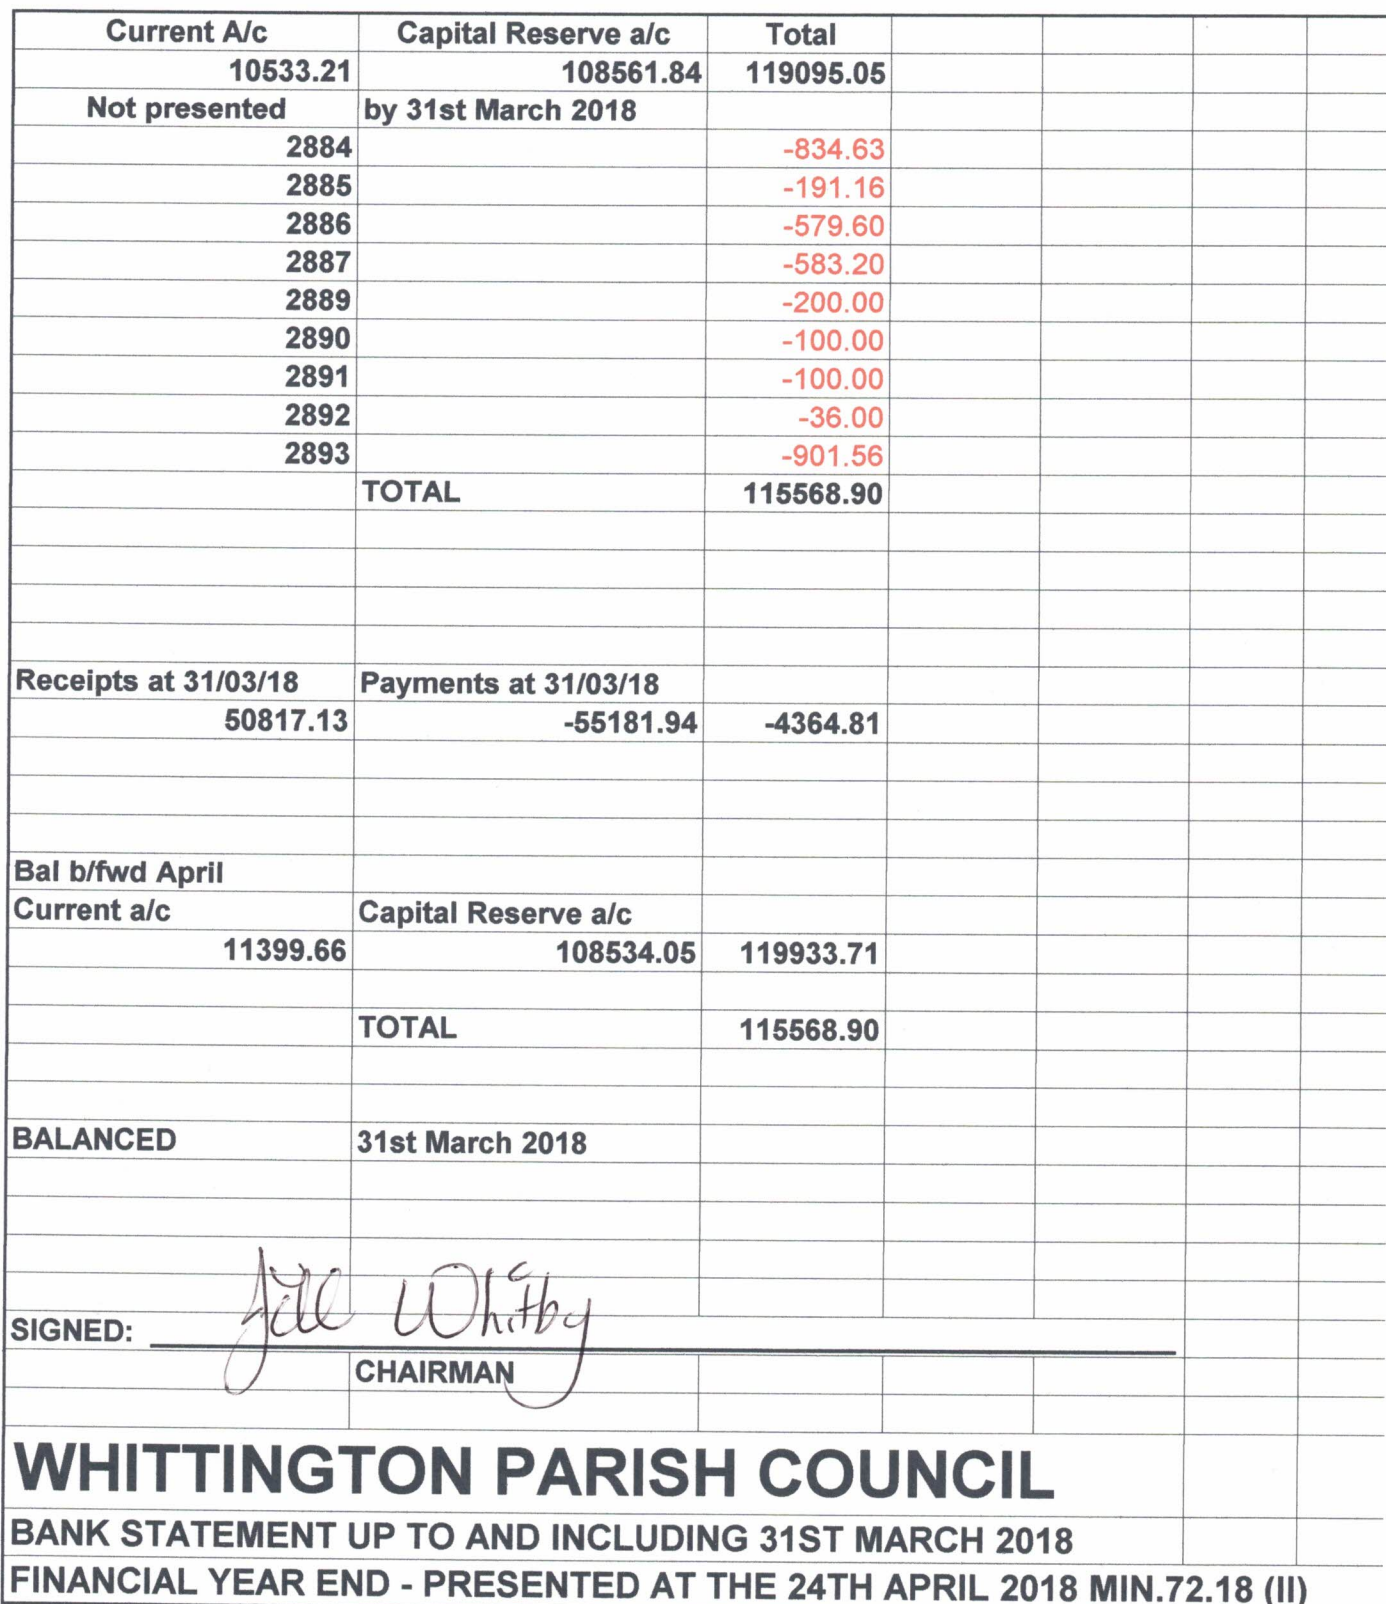 Current A/c Capital Reserve a/c Total
10533.21 108561.84 119095.05
Not presented by 31st March 2018
2884 -834.63
2885 -191.16
2886 -579.60
2887 -583.20
2889 -200.00
2890 -100.00
2891 -100.00
2892 -36.00
2893 -901.56
TOTAL 115568.90
Receipts at 31/03/18 Payments at 31/03/18
50817.13 -55181.94 -4364.81
Bal b/fwd April
Current a/c Capital Reserve a/c
11399.66 108534.05 119933.71
TOTAL 115568.90
BALANCED 31st March 2018
SIGNED: Jill Whitby
CHAIRMAN
WHITTINGTON PARISH COUNCIL
BANK STATEMENT UP TO AND INCLUDING 31ST MARCH 2018
FINANCIAL YEAR END - PRESENTED AT THE 24TH APRIL 2018 MIN.72.18 (II)